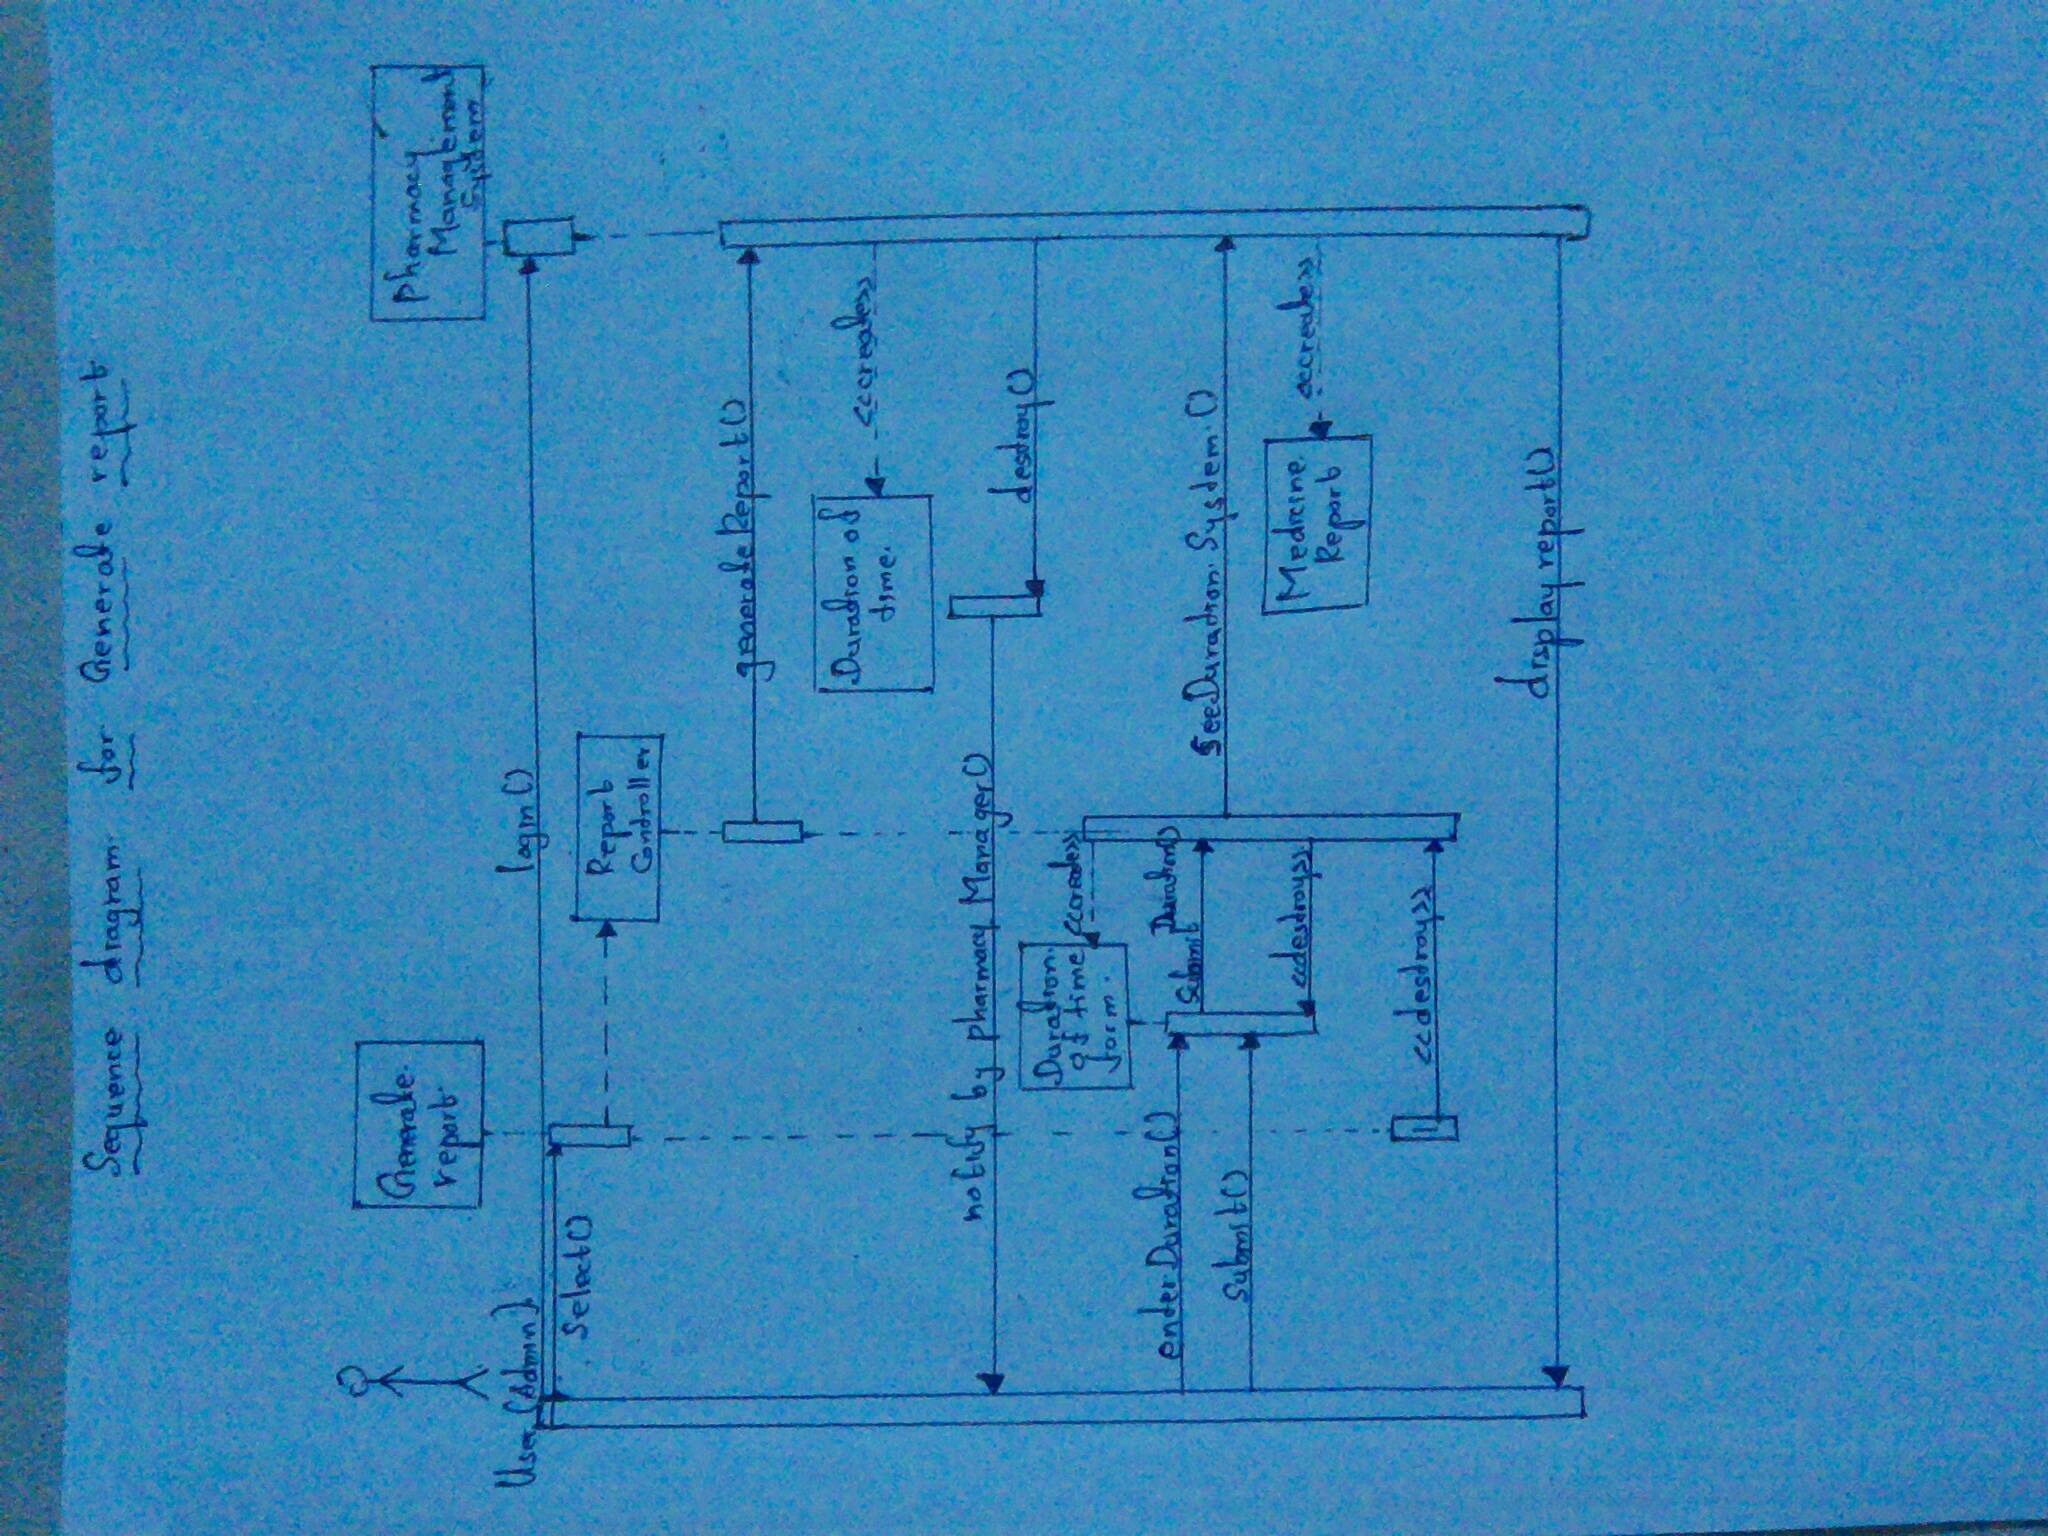 Sequence diagram for Generate report
Generate
report
Pharmacy
Management
System
User (Admin)
login()
Select()
Report
Controller
generateReport()
Duration of
time.
<<create>>
notify by pharmacy Manager()
destroy()
Duration
of time
form.
<<create>>
enterDuration()
Submit Duration()
SeeDuration System ()
Submit()
<<destroy>>
Medicine
Report
<<create>>
<<destroy>>
display report()